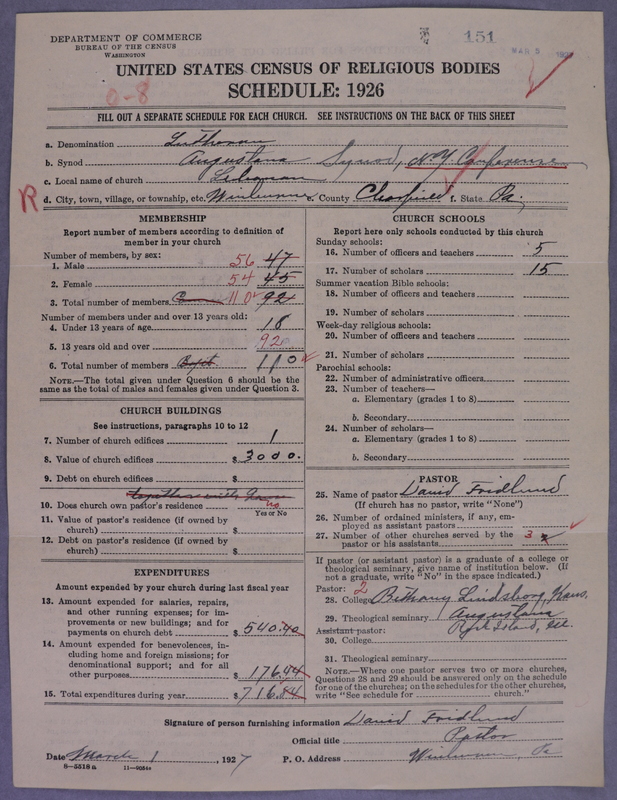 DEPARTMENT OF COMMERCE
BUREAU OF THE CENSUS
WASHINGTON
151
MAR 5
UNITED STATES CENSUS OF RELIGIOUS BODIES
SCHEDULE: 1926
0-8
FILL OUT A SEPARATE SCHEDULE FOR EACH CHURCH. SEE INSTRUCTIONS ON THE BACK OF THIS SHEET
a. Denomination Lutheran
b. Synod Augustana Synod, N.Y. Conference
c. Local name of church Lebanon
R
d. City, town, village, or township, etc. Winburne e. County Clearfield f. State Pa.
MEMBERSHIP
Report number of members according to definition of
member in your church
Number of members, by sex:
1. Male 56 47
2. Female 54 45
3. Total number of members 110 92
Number of members under and over 13 years old:
4. Under 13 years of age 18
5. 13 years old and over 92
6. Total number of members 110
NOTE.—The total given under Question 6 should be the
same as the total of males and females given under Question 3.
CHURCH BUILDINGS
See instructions, paragraphs 10 to 12
7. Number of church edifices 1
8. Value of church edifices $ 3000.
9. Debt on church edifices $
together with
10. Does church own pastor's residence no
Yes or No
11. Value of pastor's residence (if owned by
church) $
12. Debt on pastor's residence (if owned by
church) $
EXPENDITURES
Amount expended by your church during last fiscal year
13. Amount expended for salaries, repairs,
and other running expenses; for im-
provements or new buildings; and for
payments on church debt $ 540.40
14. Amount expended for benevolences, in-
cluding home and foreign missions; for
denominational support; and for all
other purposes $ 176.44
15. Total expenditures during year $ 716.84
CHURCH SCHOOLS
Report here only schools conducted by this church
Sunday schools:
16. Number of officers and teachers 5
17. Number of scholars 15
Summer vacation Bible schools:
18. Number of officers and teachers
19. Number of scholars
Week-day religious schools:
20. Number of officers and teachers
21. Number of scholars
Parochial schools:
22. Number of administrative officers
23. Number of teachers—
a. Elementary (grades 1 to 8)
b. Secondary
24. Number of scholars—
a. Elementary (grades 1 to 8)
b. Secondary
PASTOR
25. Name of pastor David Fridlund
(If church has no pastor, write "None")
26. Number of ordained ministers, if any, em-
ployed as assistant pastors
27. Number of other churches served by the
pastor or his assistants 3
If pastor (or assistant pastor) is a graduate of a college or
theological seminary, give name of institution below. (If
not a graduate, write "No" in the space indicated.)
Pastor: 2
28. College Bethany Lindsborg, Kans.
29. Theological seminary Augustana
Assistant pastor: Rock Island, Ill.
30. College
31. Theological seminary
NOTE.—Where one pastor serves two or more churches,
Questions 28 and 29 should be answered only on the schedule
for one of the churches; on the schedules for the other churches,
write "See schedule for church."
Signature of person furnishing information David Fridlund
Official title Pastor
Date March 1, 1927 P. O. Address Winburne, Pa
8—5518a 11—9056a